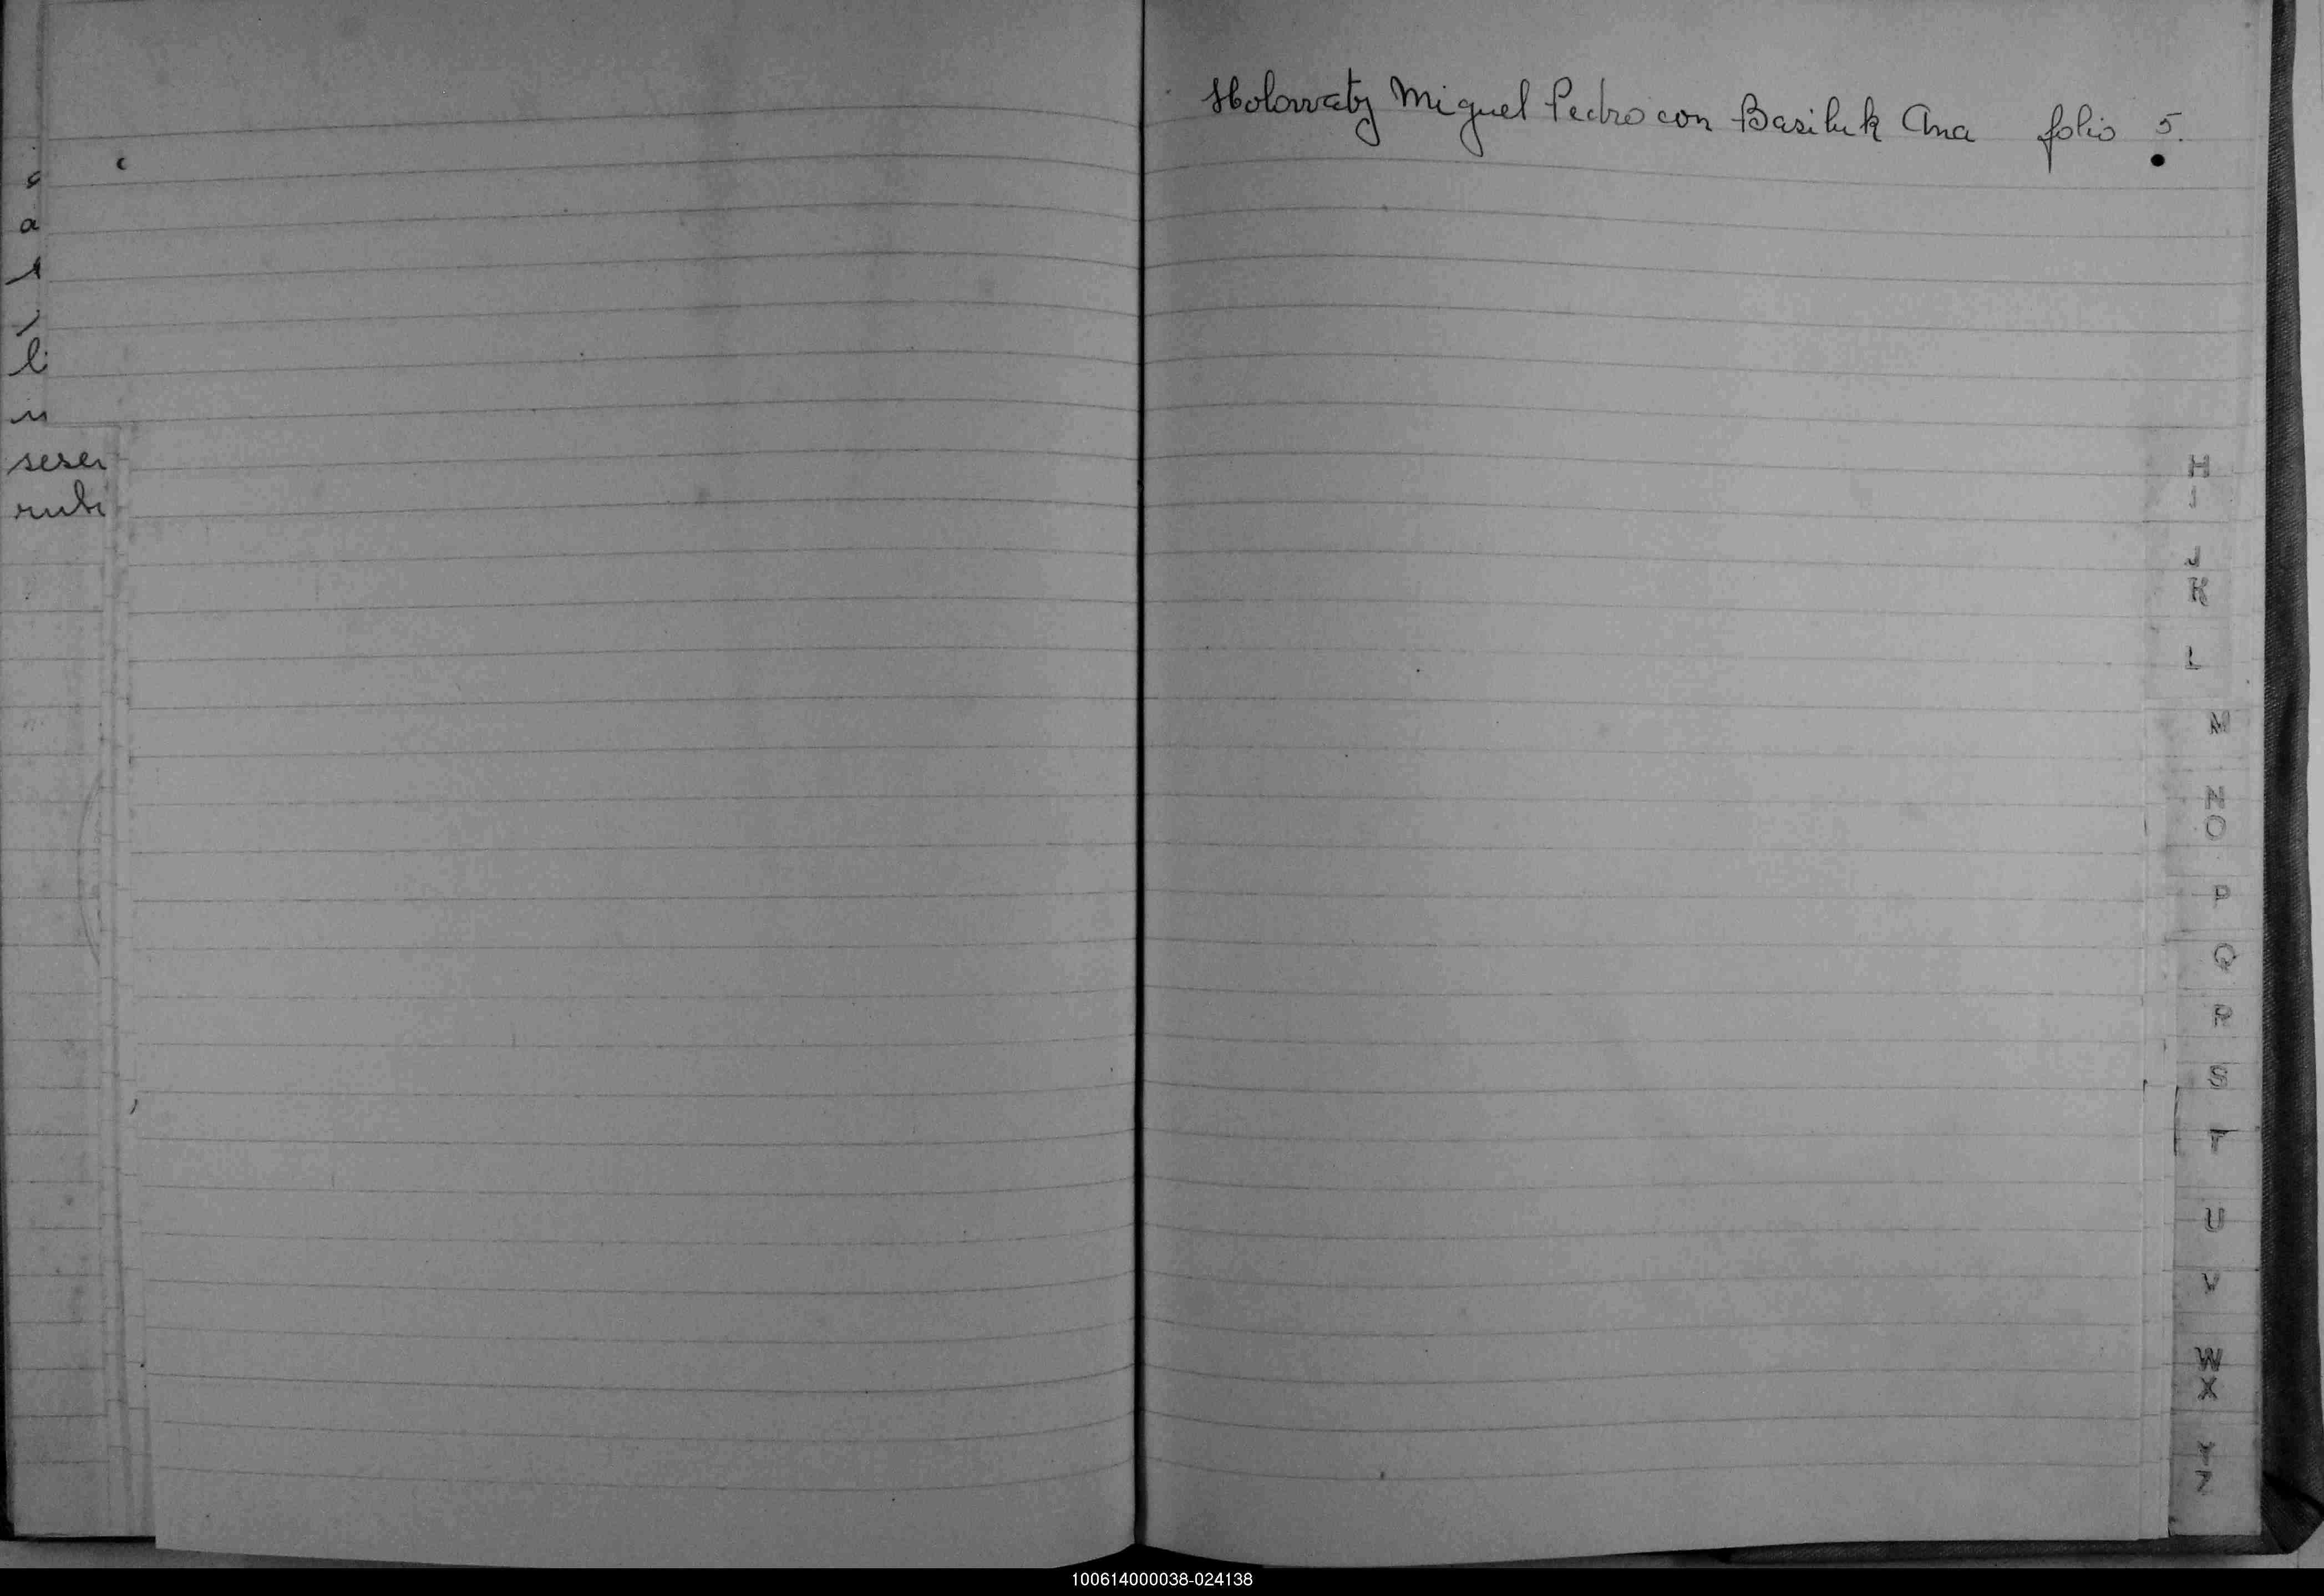 Holowaty Miguel Pedro con Basiluk Ana folio 5.
H
I
J
K
L
M
N
O
P
Q
R
S
T
U
V
W
X
Y
Z
100614000038-024138